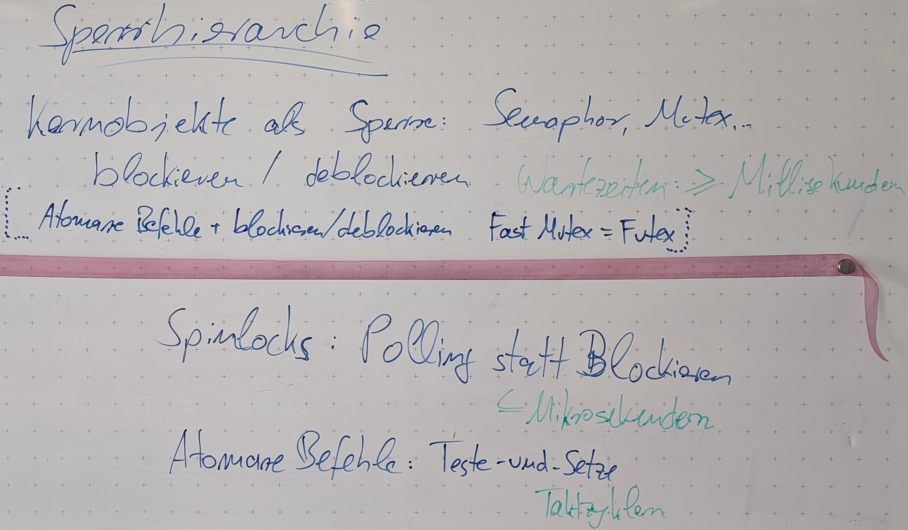 Sperrhierarchie
Kernobjekte als Sperre: Semaphor, Mutex,..
blockieren / deblockieren Wartezeiten: ≥ Millisekunden
Atomare Befehle + blockieren/deblockieren Fast Mutex = Futex
Spinlocks: Polling statt Blockieren
≤ Mikrosekunden
Atomare Befehle: Teste-und-Setze
Taktzyklen